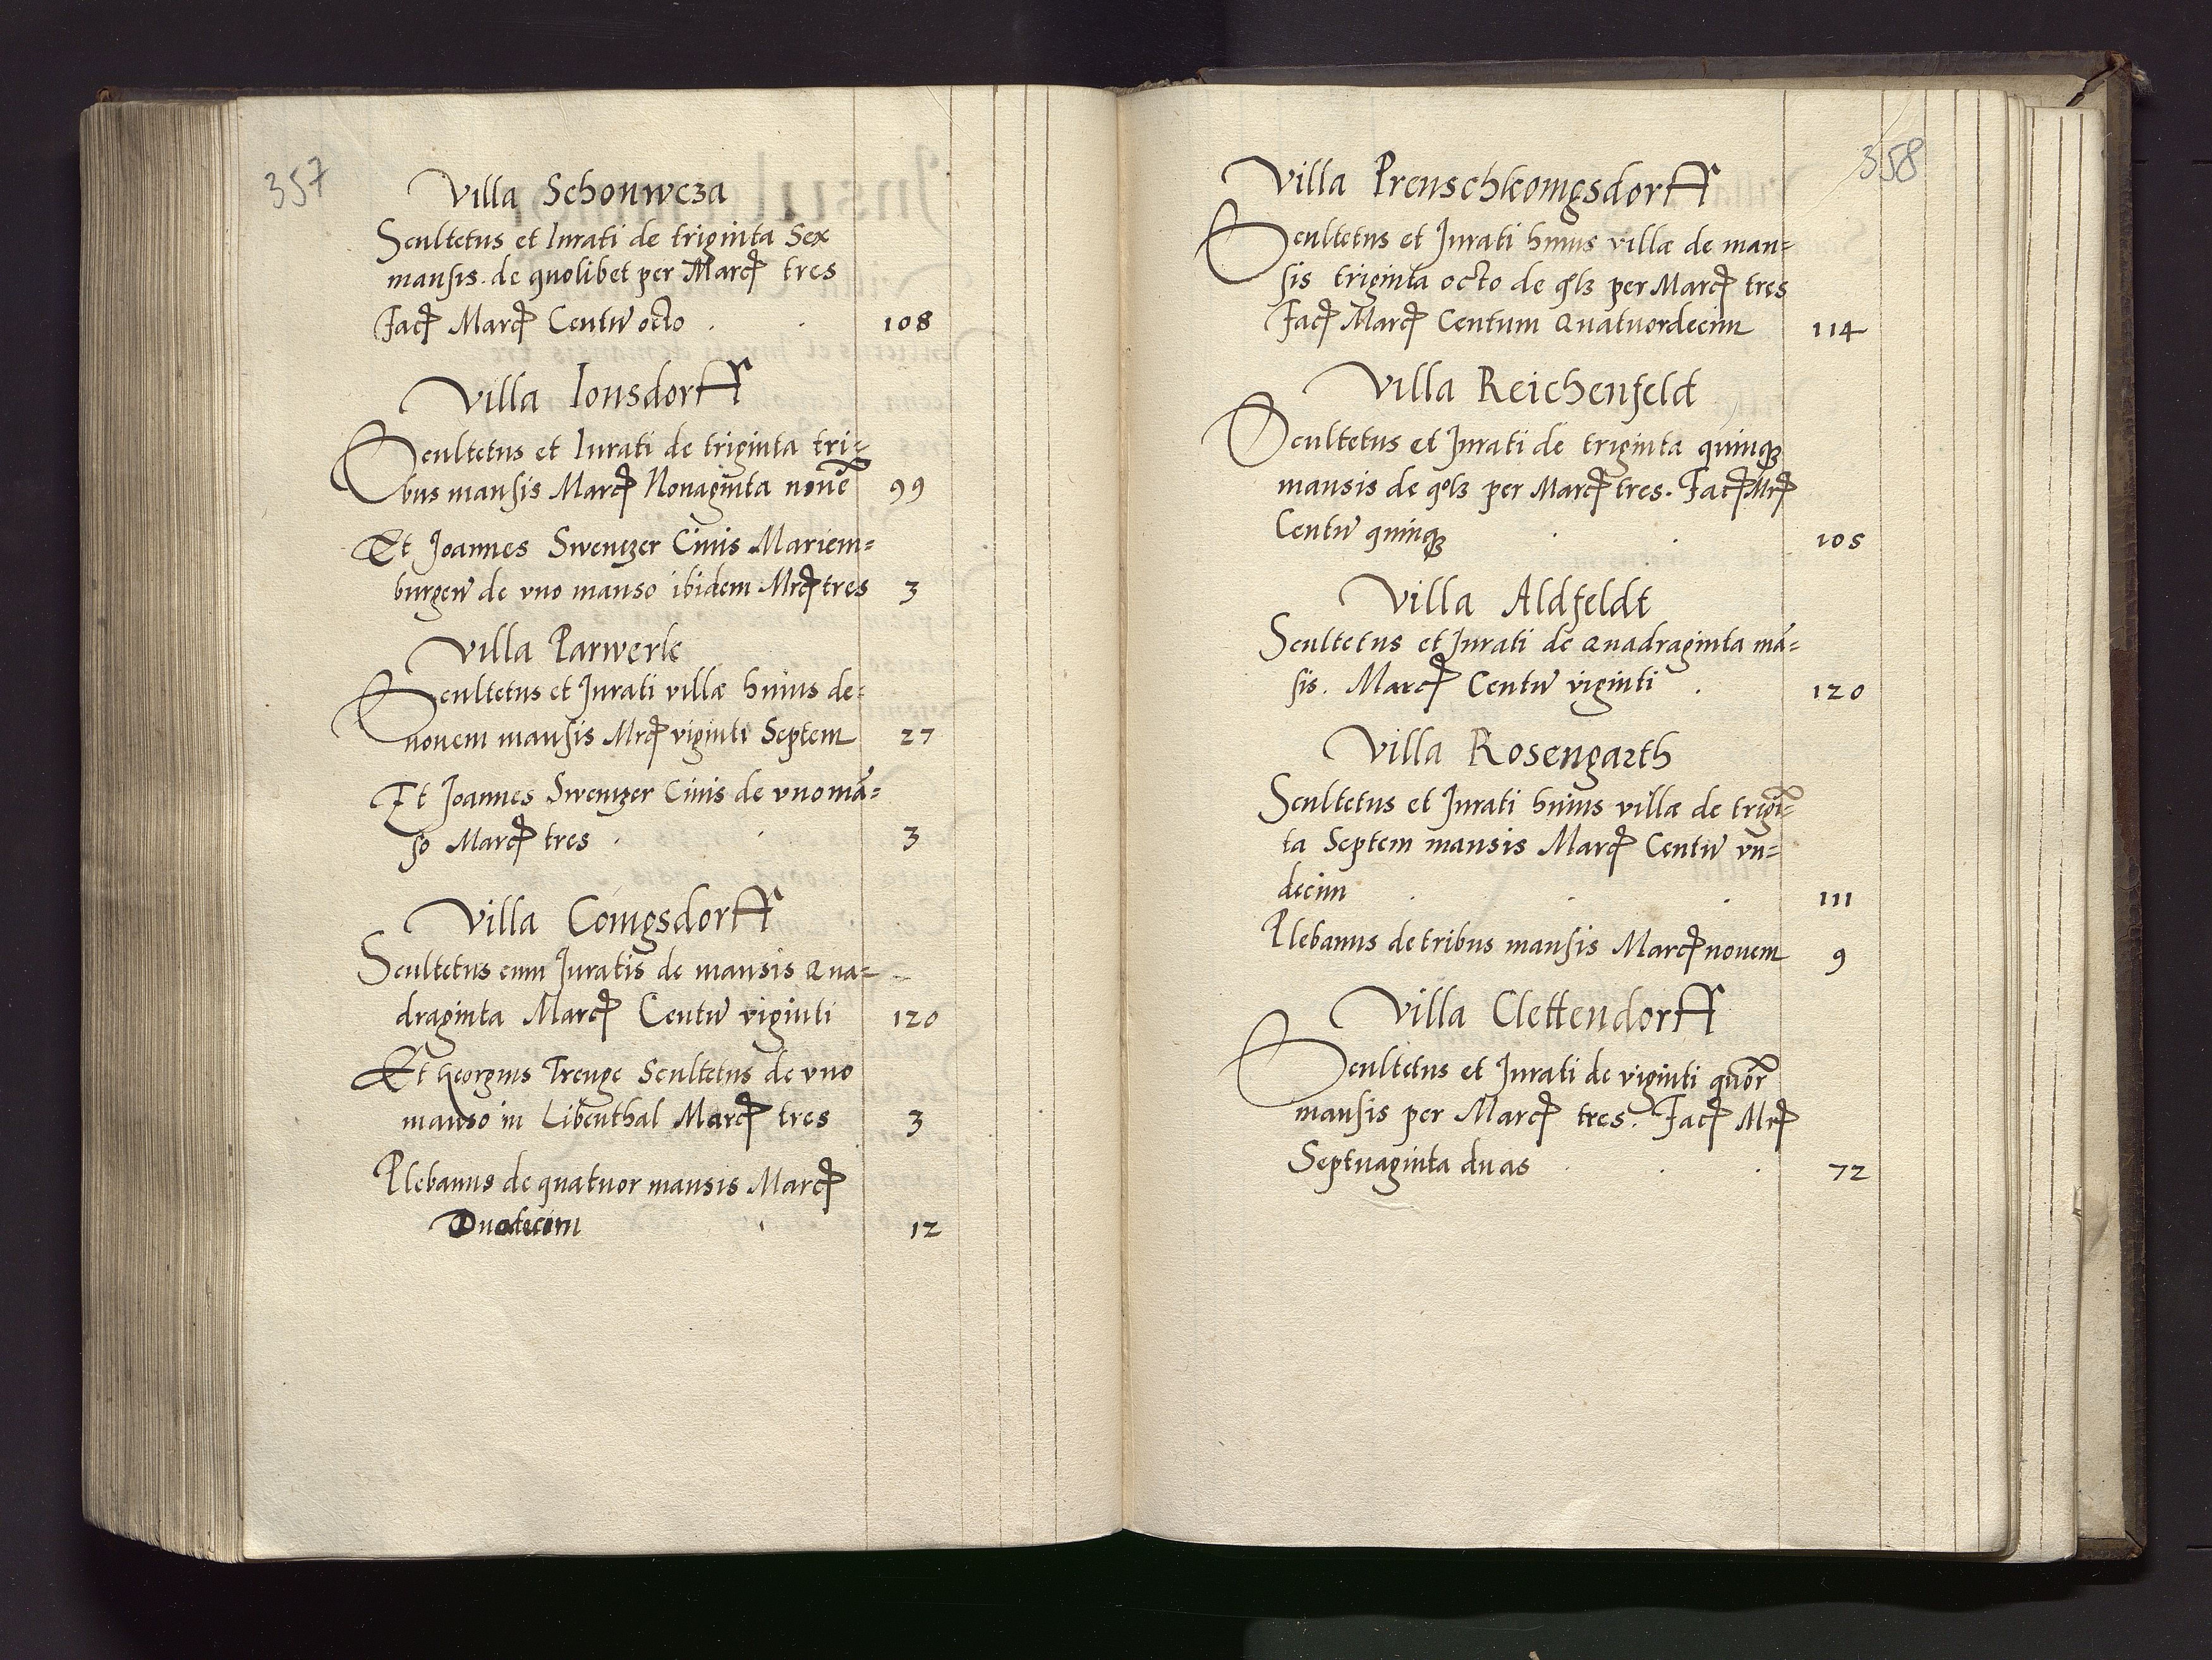 357
Villa Schonweza
Scultetus et Iurati de triginta Sex
mansis. de quolibet per Marc̃ tres
Fac̃ Marc̃ Centũ octo . . 108
Villa Ionsdorff
Scultetus et Iurati de triginta tri=
bus mansis Marc̃ Nonaginta nouẽ 99
Et Joannes Swentzer Ciuis Mariem=
burgeñ de vno manso ibidem Mrc̃ tres 3
Villa Parwerk
Scultetus et Jurati villæ huius de
nouem mansis Mrc̃ viginti Septem 27
Et Joannes Swentzer Ciuis de vno mã=
so Marc̃ tres . . 3
Villa Conigsdorff
Scultetus cum Juratis de mansis Qua=
draginta Marc̃ Centũ viginti 120
Et Georgius Trenge Scultetus de vno
manso in Libenthal Marc̃ tres 3
Plebanus de quatuor mansis Marc̃
Duodecim . 12
358
Villa Preuschkonigsdorff
Scultetus et Jurati huius villæ de man=
sis triginta octo de qlȝ per Marc̃ tres
Fac̃ Marc̃ Centum Quatuordecim 114
Villa Reichenfeld
Scultetus et Jurati de triginta quinqȝ
mansis de qolȝ per Marc̃ tres. Fac̃ Mrc̃
Centũ quinqȝ . . 105
Villa Aldfeldt
Scultetus et Jurati de Quadraginta mã=
sis. Marc̃ Centũ viginti . 120
Villa Rosengarth
Scultetus et Jurati huius villæ de trigĩ=
ta Septem mansis Marc̃ Centũ vn=
decim . . . 111
Plebanus de tribus mansis Marc̃ nouem 9
Villa Clettendorff
Scultetus et Jurati de viginti quõr
mansis per Marc̃ tres. Fac̃ Mrc̃
Septuaginta duas . . . 72